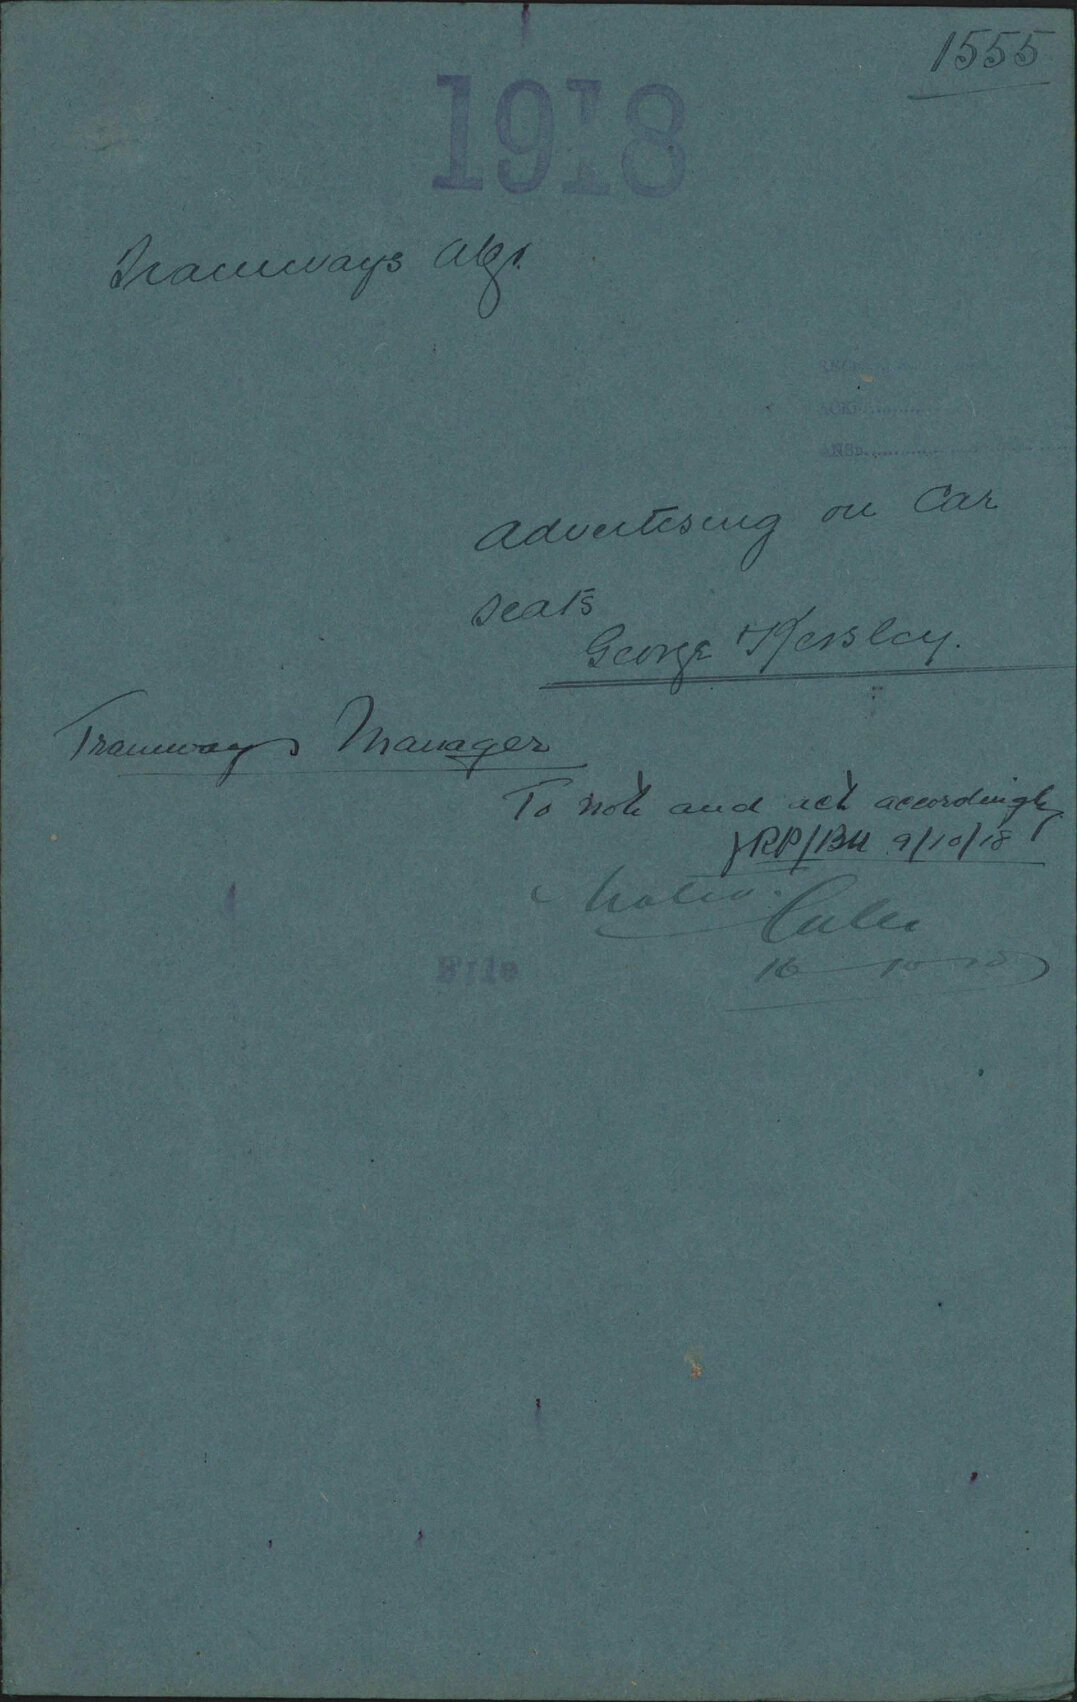 1555
1918
Tramways Mgr.
Advertising on Car
seats
George Kersley.
Tramways Manager
To note and act accordingly
JRP/BM 9/10/18
Noted.
16-10-18
File